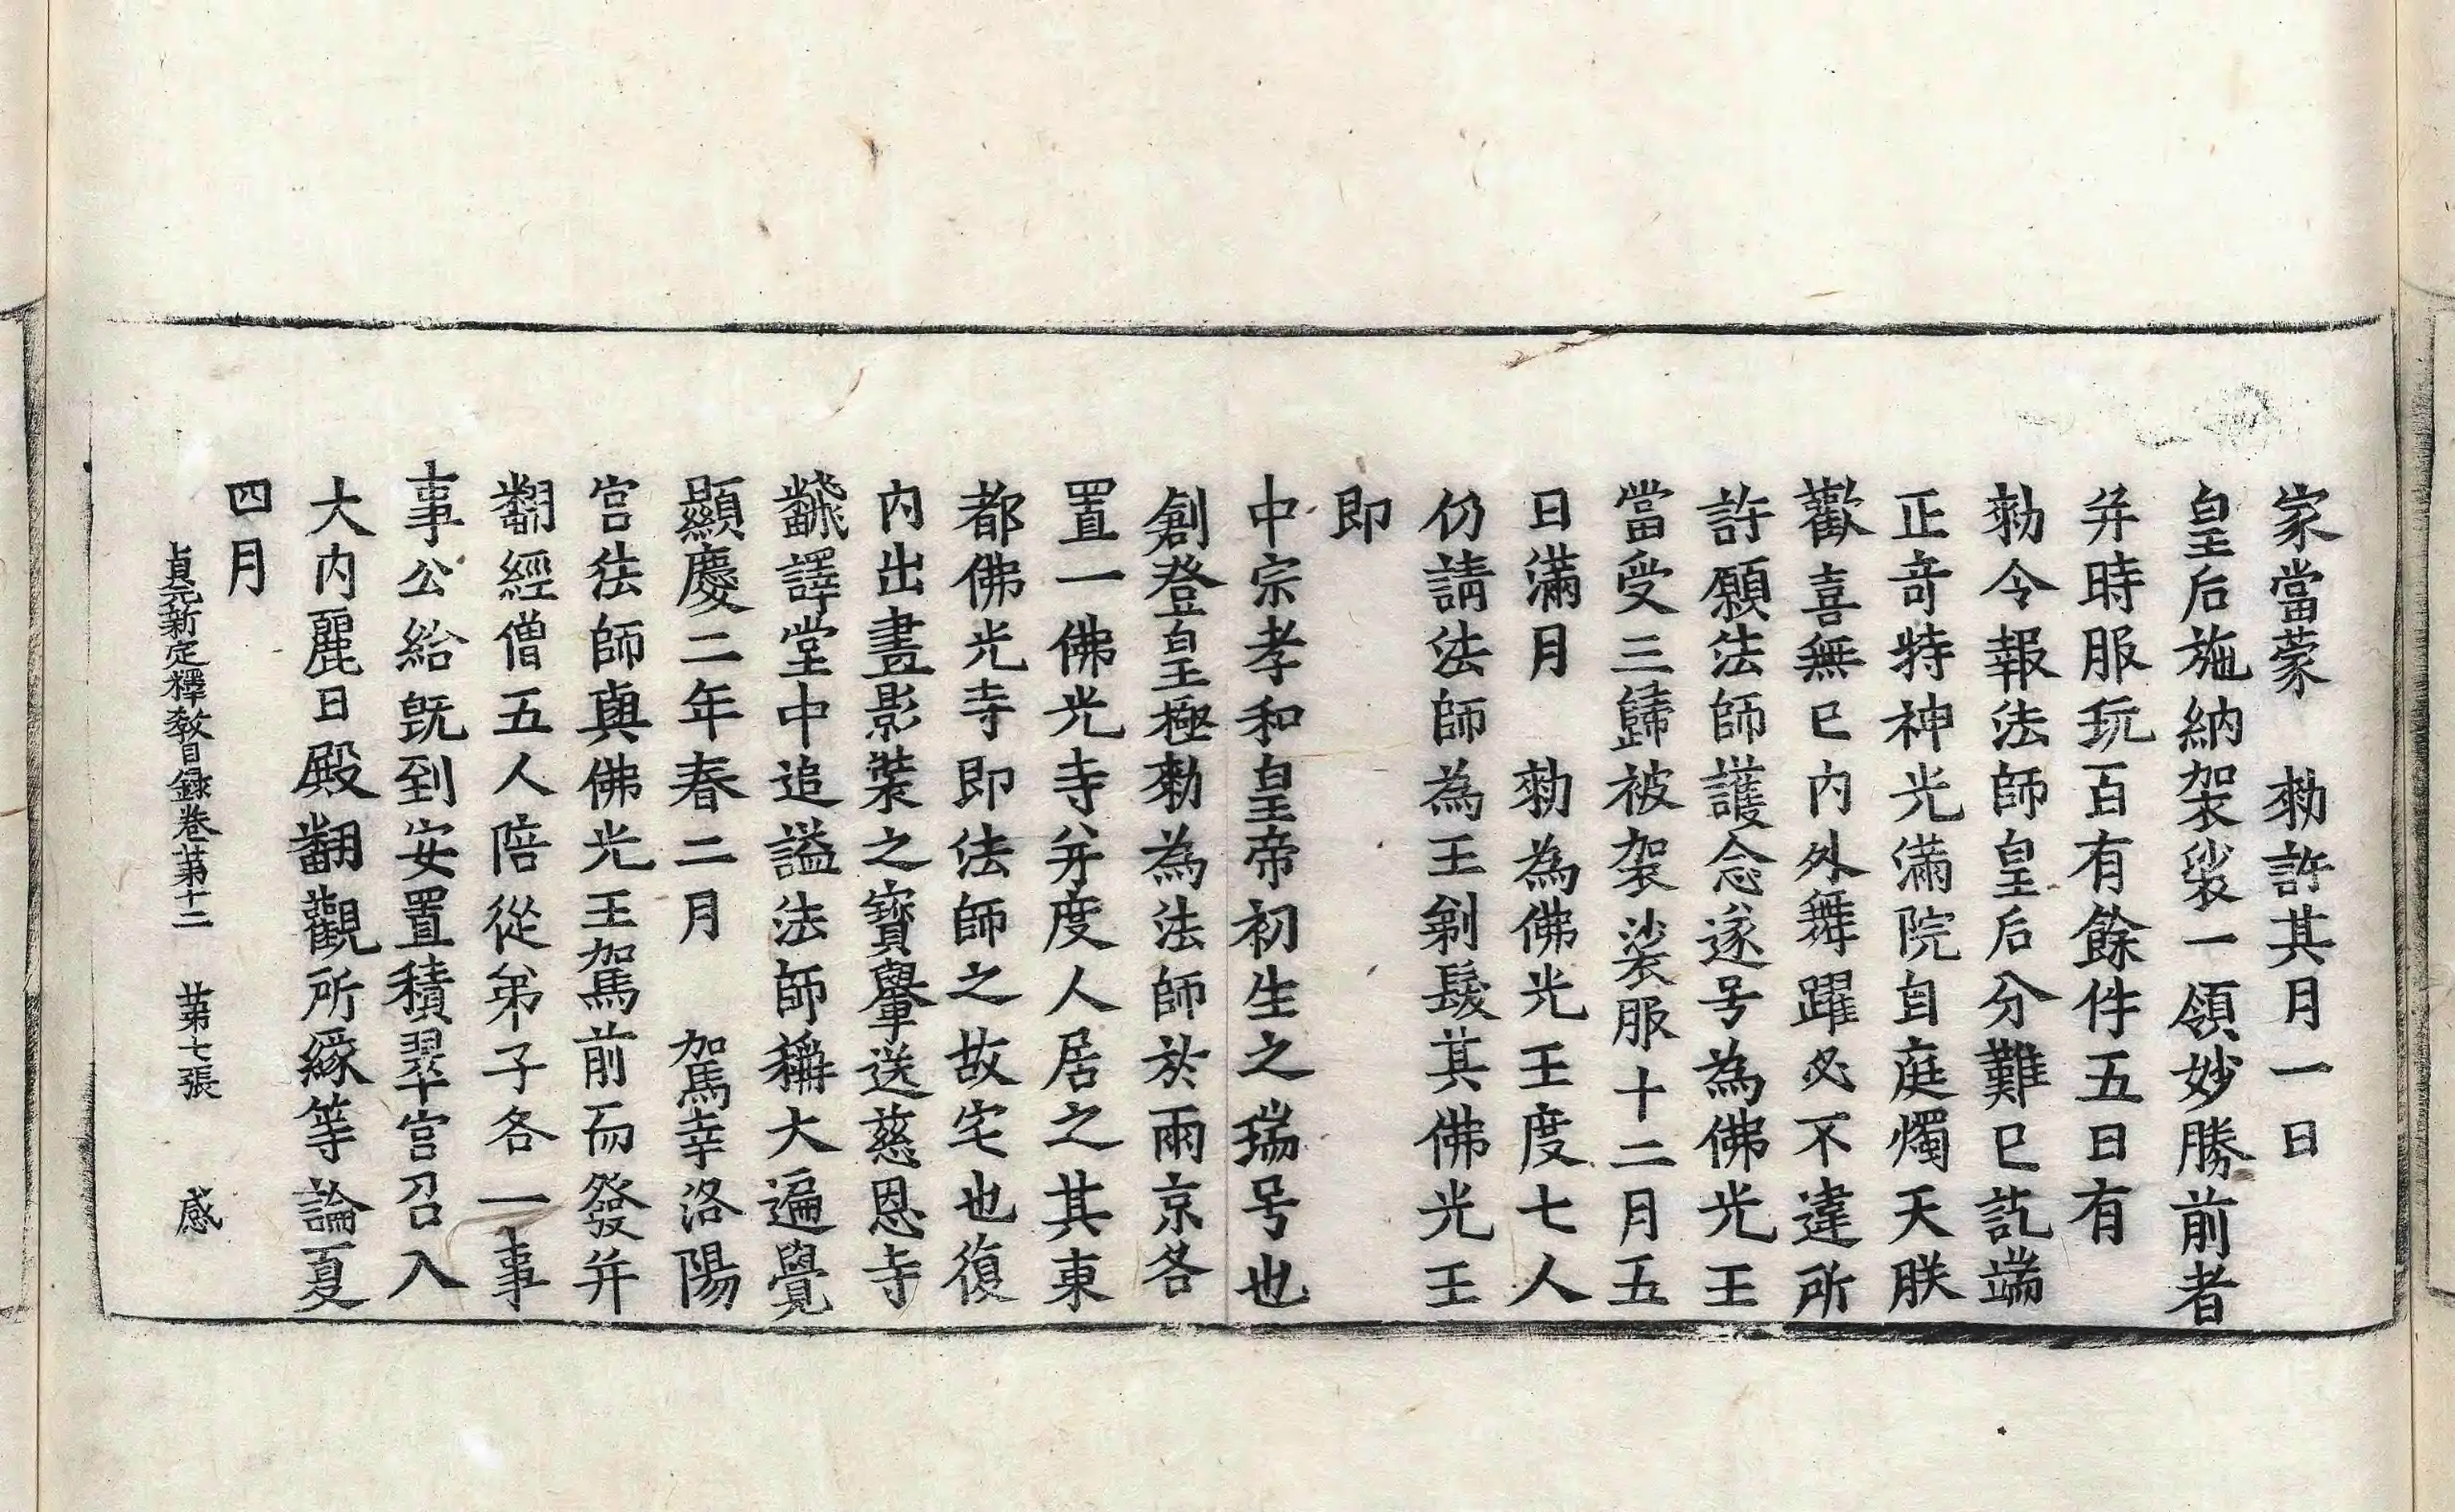 家當蒙　勑許其月一日
皇后施納袈裟一領妙勝前者
并時服玩百有餘件五日有
勑令報法師皇后分難已訖端
正竒特神光滿院自庭燭天朕
歡喜無已內外舞躍必不違所
許願法師護念遂号為佛光王
當受三歸被袈裟服十二月五
日滿月　勑為佛光王度七人
仍請法師為王剃髮其佛光王
即
中宗孝和皇帝初生之瑞号也
創登皇極勑為法師於兩京各
置一佛光寺并度人居之其東
都佛光寺即法師之故宅也復
內出畫影裝之寶轝送慈恩寺
飜譯堂中追謚法師稱大遍覺
顯慶二年春二月　駕幸洛陽
宮法師與佛光王駕前而發并
翻經僧五人陪從弟子各一事
事公給既到安置積翠宮召入
大內麗日殿翻觀所緣等論夏
四月
貞元新定釋教目錄卷第十二　第七張　感